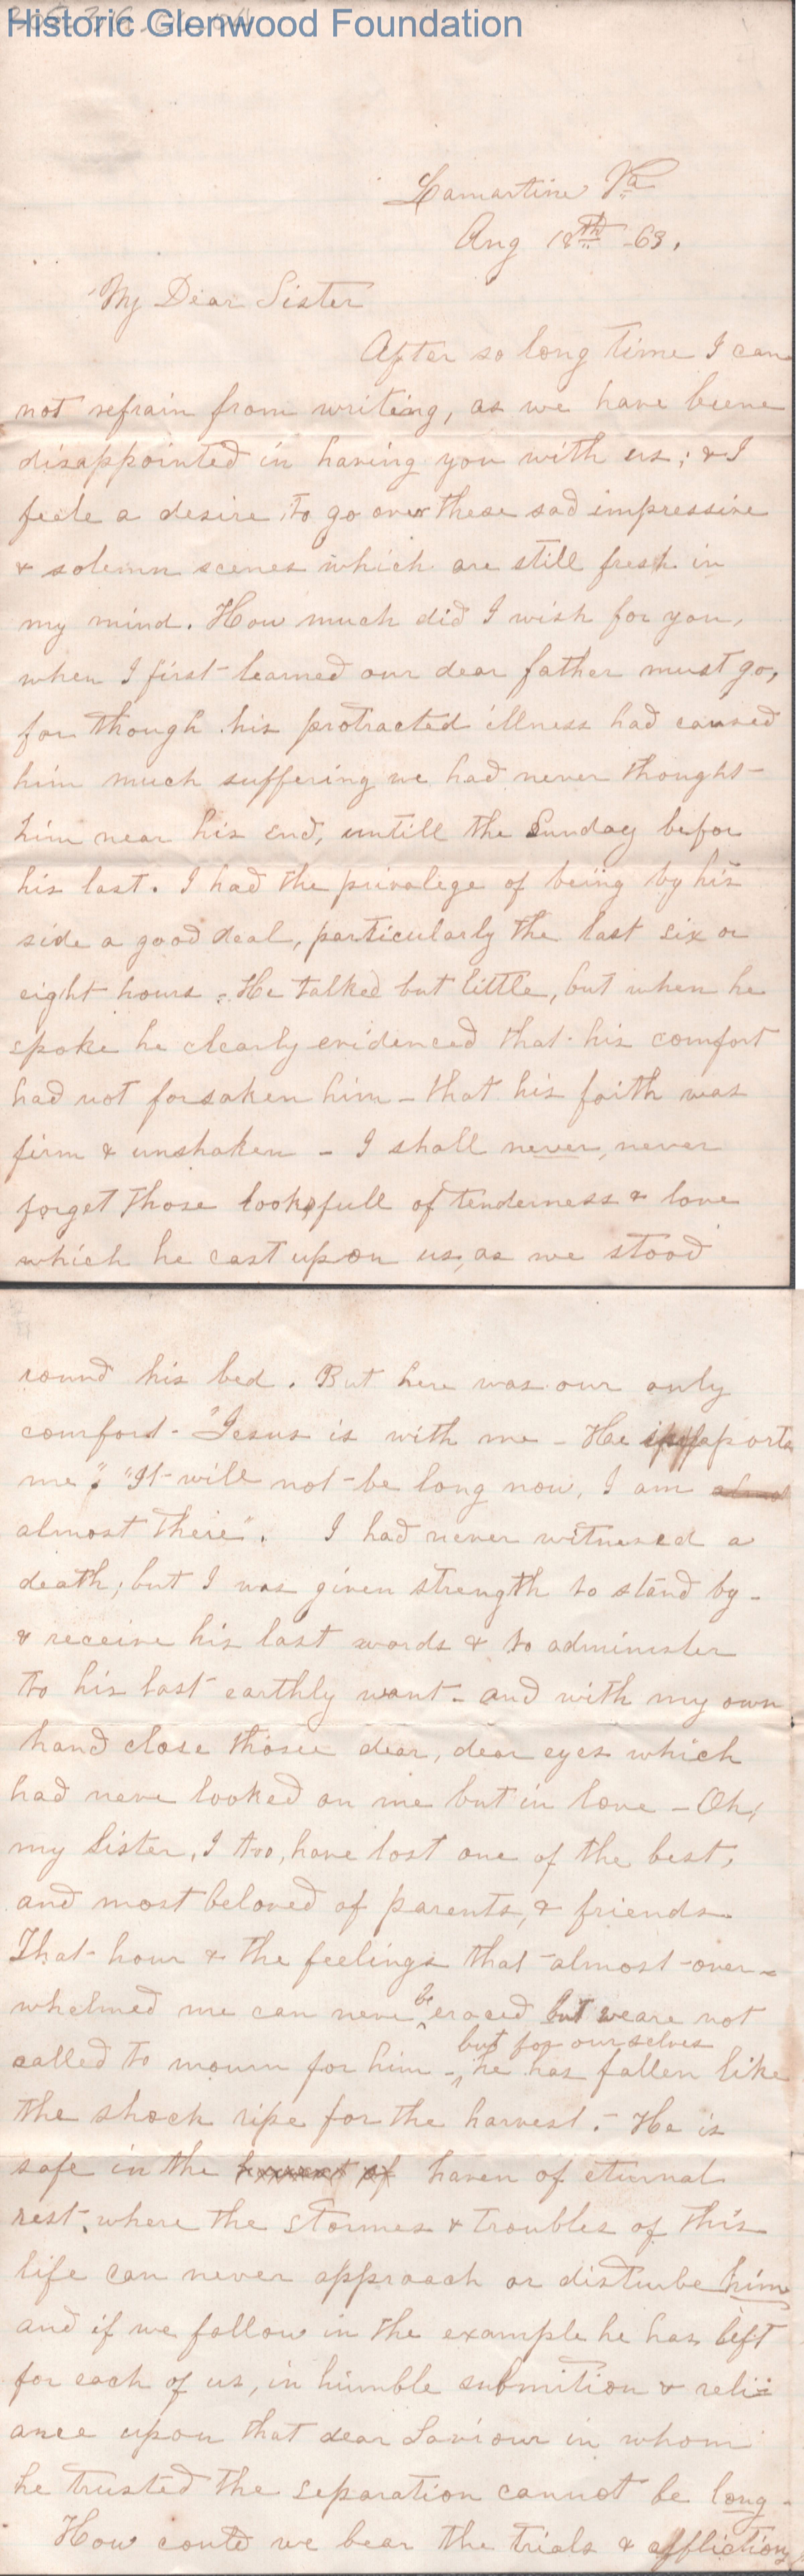 Historic Glenwood Foundation
Lamartine Va
Aug 18th -63.
My Dear Sister
After so long time I can
not refrain from writing, as we have beene
disappointed in having you with us; & I
feele a desire to go over these sad impressive
& solemn scenes which are still fresh in
my mind. How much did I wish for you,
when I first learned our dear father must go,
for though his protracted illness had caused
him much suffering we had never thought
him near his end, untill the Sunday befor
his last. I had the privalege of being by his
side a good deal, particularly the last six or
eight hours. He talked but little, but when he
spoke he clearly evidenced that his comfort
had not forsaken him - that his faith was
firm & unshaken - I shall never, never
forget those looks full of tenderness & love
which he cast upon us, as we stood
round his bed. But here was our only
comfort - "Jesus is with me - He supports
me", "It will not be long now, I am
almost there". I had never witnessed a
death, but I was given strength to stand by -
& receive his last words & to administer
to his last earthly want - and with my own
hand close those dear, dear eyes which
had neve looked on me but in love - Oh,
my Sister, I too, have lost one of the best,
and most beloved of parents, & friends.
That hour & the feelings that almost over-
whelmed me can neve be eraced but we are not
called to mourn for him - but for ourselves he has fallen like
the shock ripe for the harvest. - He is
safe in the haven of eturnal
rest, where the stormes & troubles of this
life can never approach or disturbe him
and if we follow in the example he has left
for each of us, in humble submition & reli-
ance upon that dear Saviour in whom
he trusted the separation cannot be long -
How could we bear the trials & afflictions